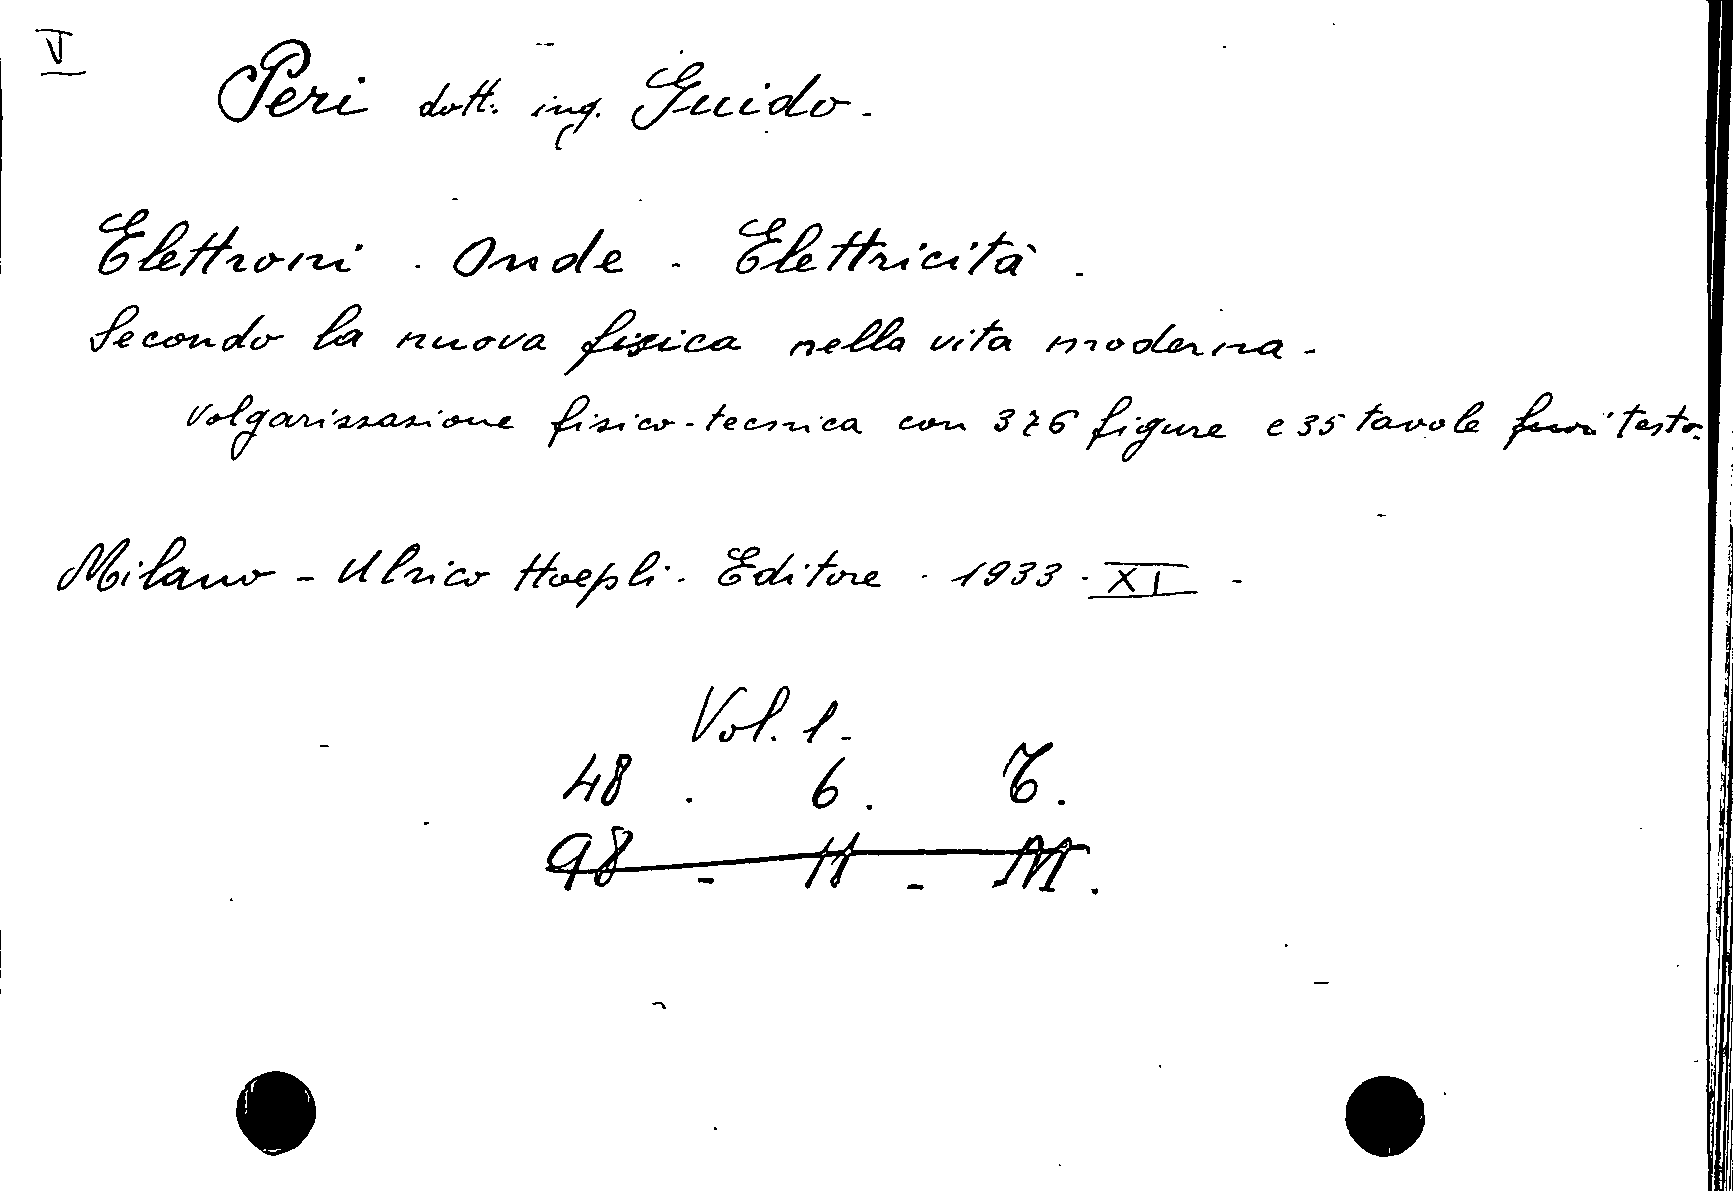 V
Peri dott. ing. Guido.
Elettroni . Onde . Elettricità .
Secondo la nuova fisica nella vita moderna.
Volgarizzazione fisico-tecnica con 376 figure e 35 tavole fuori testo.
Milano - Ulrico Hoepli. Editore . 1933 . XI .
Vol. 1.
48 . 6 .
98 - 11 - M.